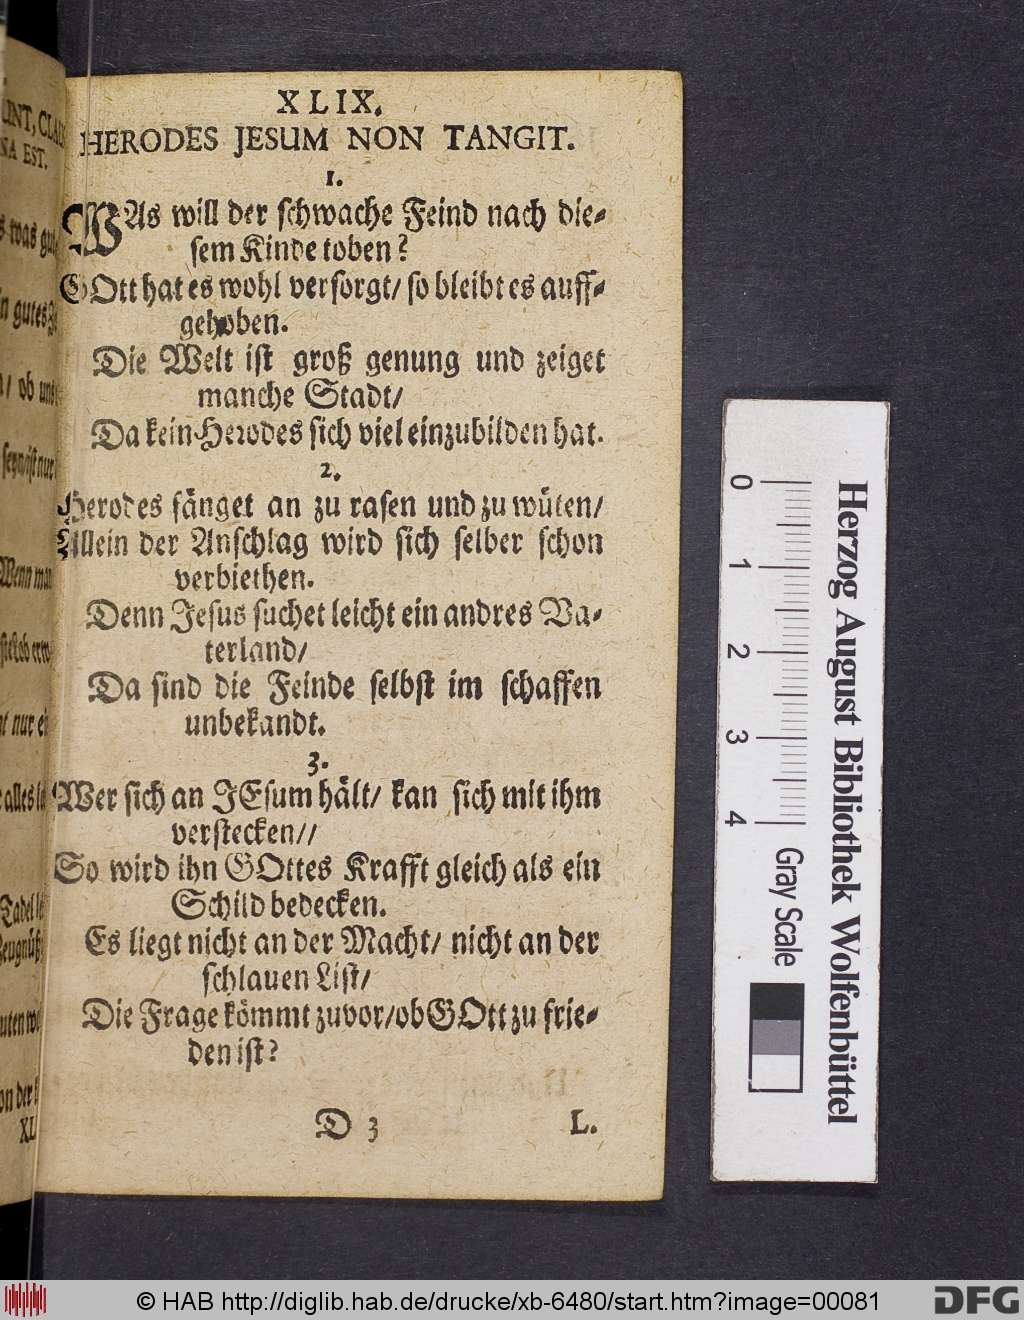 XLIX.
HERODES JESUM NON TANGIT.
1.
WAs will der schwache Feind nach die-
sem Kinde toben?
GOtt hat es wohl versorgt/ so bleibt es auff-
gehoben.
Die Welt ist groß genung und zeiget
manche Stadt/
Da kein Herodes sich viel einzubilden hat.
2.
Herodes fänget an zu rasen und zu wüten/
Allein der Anschlag wird sich selber schon
verbiethen.
Denn Jesus suchet leicht ein andres Va-
terland/
Da sind die Feinde selbst im schaffen
unbekandt.
3.
Wer sich an JEsum hält/ kan sich mit ihm
verstecken//
So wird ihn GOttes Krafft gleich als ein
Schild bedecken.
Es liegt nicht an der Macht/ nicht an der
schlauen List/
Die Frage kömmt zuvor/ ob GOtt zu frie-
den ist?
D 3 L.
0 1 2 3 4 Gray Scale
Herzog August Bibliothek Wolfenbüttel
© HAB http://diglib.hab.de/drucke/xb-6480/start.htm?image=00081
DFG